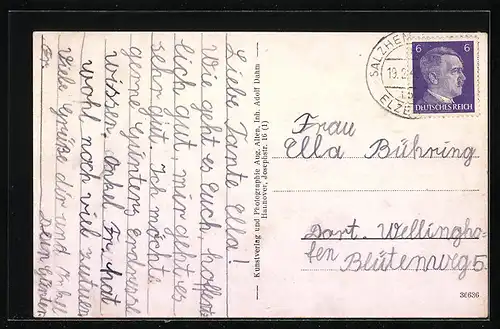 Liebe Tante Ella!
Wie geht es Euch, hoffent-
lich gut mir geht es
sehr gut. Ich möchte
gerne Günters Erdnussel
wissen. Onkel Fr. hat
wohl noch viel zu tun
Viele Grüße dir und Onkel
Fr. Dein Günter
Kunstverlag und Photographie Aug. Alten, Inh. Adolf Dahm
Hannover, Josephstr. 16 (1)
SALZHEM
19.2.4
ELZE
6 6
DEUTSCHES REICH
Frau
Ella Bühring
Dort. Wellingho-
fen
Blütenweg 5
36636